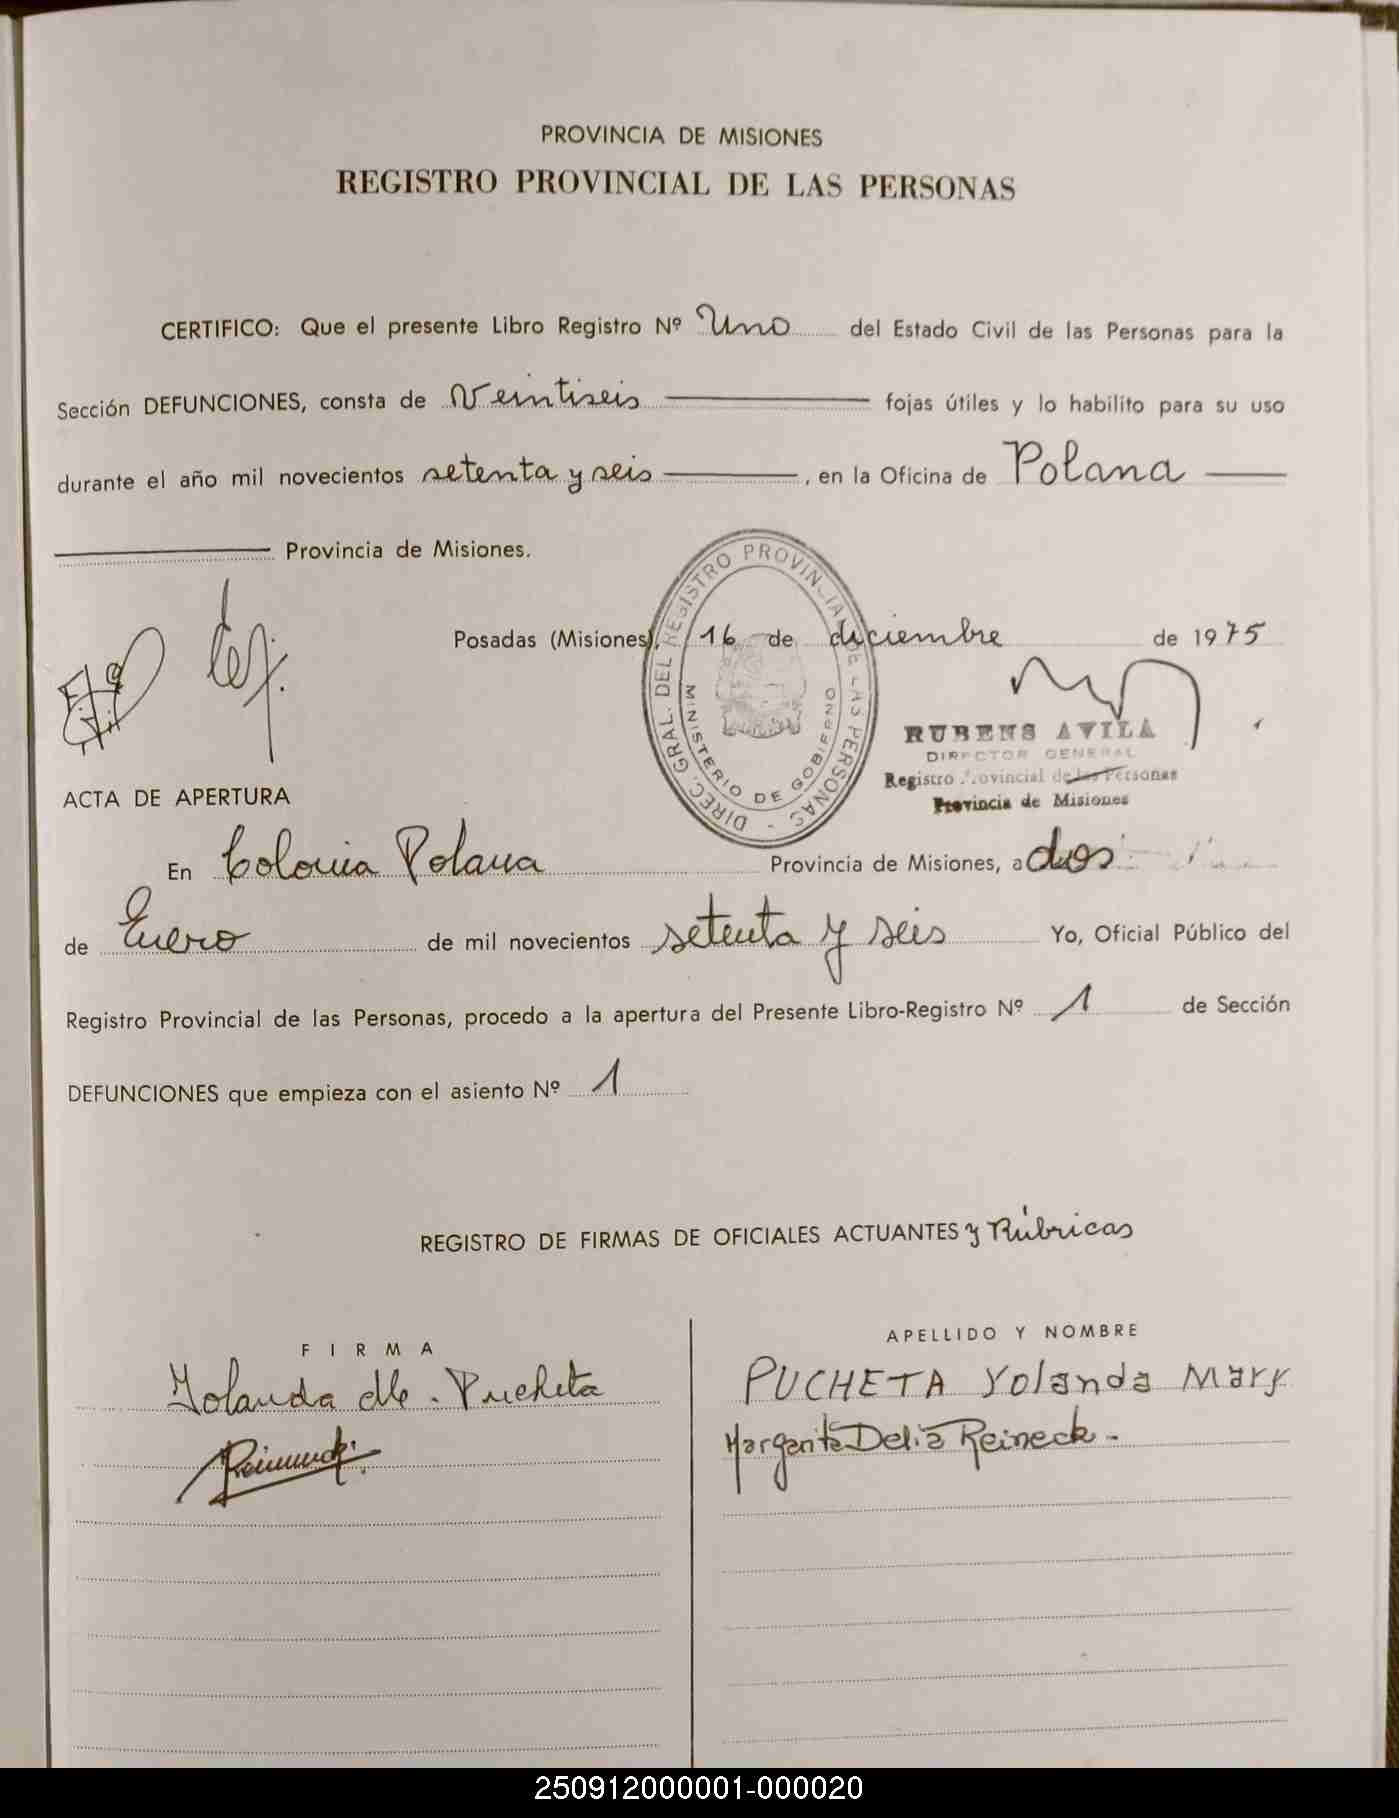 PROVINCIA DE MISIONES
REGISTRO PROVINCIAL DE LAS PERSONAS
CERTIFICO: Que el presente Libro Registro Nº Uno del Estado Civil de las Personas para la
Sección DEFUNCIONES, consta de Veintiseis fojas útiles y lo habilito para su uso
durante el año mil novecientos setenta y seis, en la Oficina de Polana
Provincia de Misiones.
DIREC. GRAL. DEL REGISTRO PROVINCIAL DE LAS PERSONAS -
MINISTERIO DE GOBIERNO
Posadas (Misiones), 16 de diciembre de 1975
RUBENS AVILA
DIRECTOR GENERAL
Registro Provincial de las Personas
Provincia de Misiones
ACTA DE APERTURA
En Colonia Polana Provincia de Misiones, a dos
de Enero de mil novecientos setenta y seis Yo, Oficial Público del
Registro Provincial de las Personas, procedo a la apertura del Presente Libro-Registro Nº 1 de Sección
DEFUNCIONES que empieza con el asiento Nº 1
REGISTRO DE FIRMAS DE OFICIALES ACTUANTES y Rúbricas
FIRMA APELLIDO Y NOMBRE
Yolanda M. Pucheta PUCHETA Yolanda Mary
Margarita Delia Reineck.-
250912000001-000020